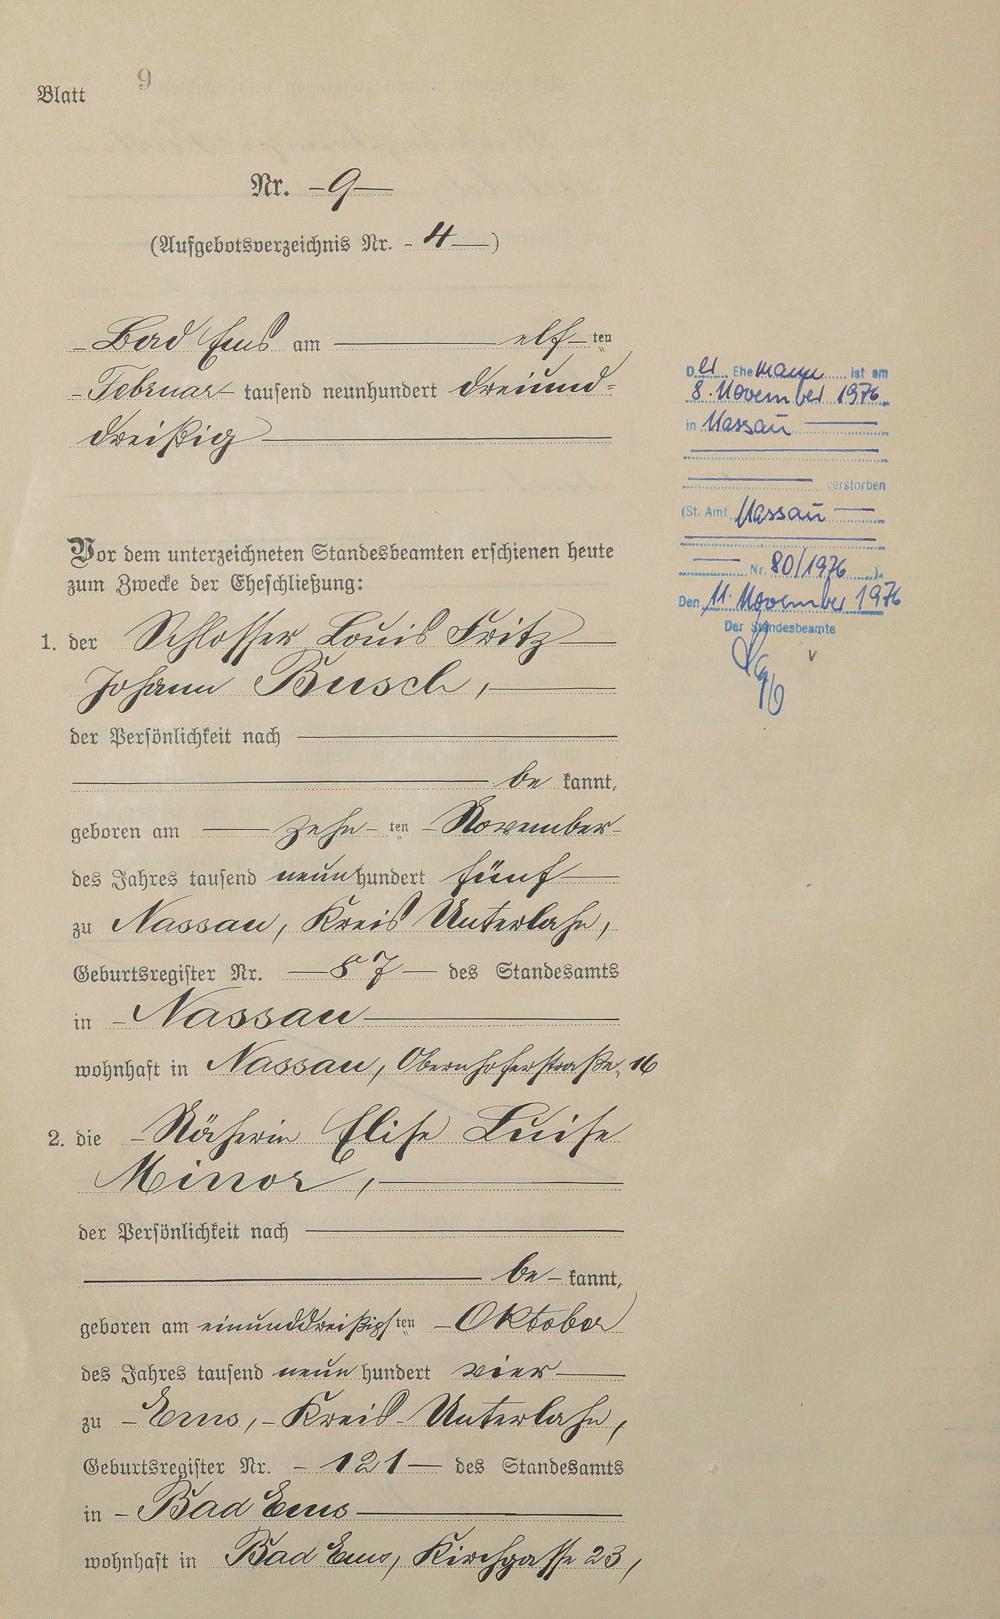 Blatt 9
Nr. 9
(Aufgebotsverzeichnis Nr. 4)
Bad Ems am elf ten
Februar tausend neunhundert dreiund-
dreißig
Vor dem unterzeichneten Standesbeamten erschienen heute
zum Zwecke der Eheschließung:
1. der Schlosser Louis Fritz
Johann Busch,
der Persönlichkeit nach
be kannt,
geboren am zehn ten November
des Jahres tausend neun hundert fünf
zu Nassau, Kreis Unterlahn,
Geburtsregister Nr. 87 des Standesamts
in Nassau
wohnhaft in Nassau, Obernhoferstraße 16
2. die Näherin Elise Luise
Minor,
der Persönlichkeit nach
be kannt,
geboren am einunddreißigsten Oktober
des Jahres tausend neun hundert vier
zu Ems, Kreis Unterlahn,
Geburtsregister Nr. 121 des Standesamts
in Bad Ems
wohnhaft in Bad Ems, Kirchgasse 23,
Der Ehemann ist am
8. November 1976
in Nassau
verstorben
(St. Amt Nassau
Nr. 80/1976 ).
Den 11. November 1976
Der Standesbeamte